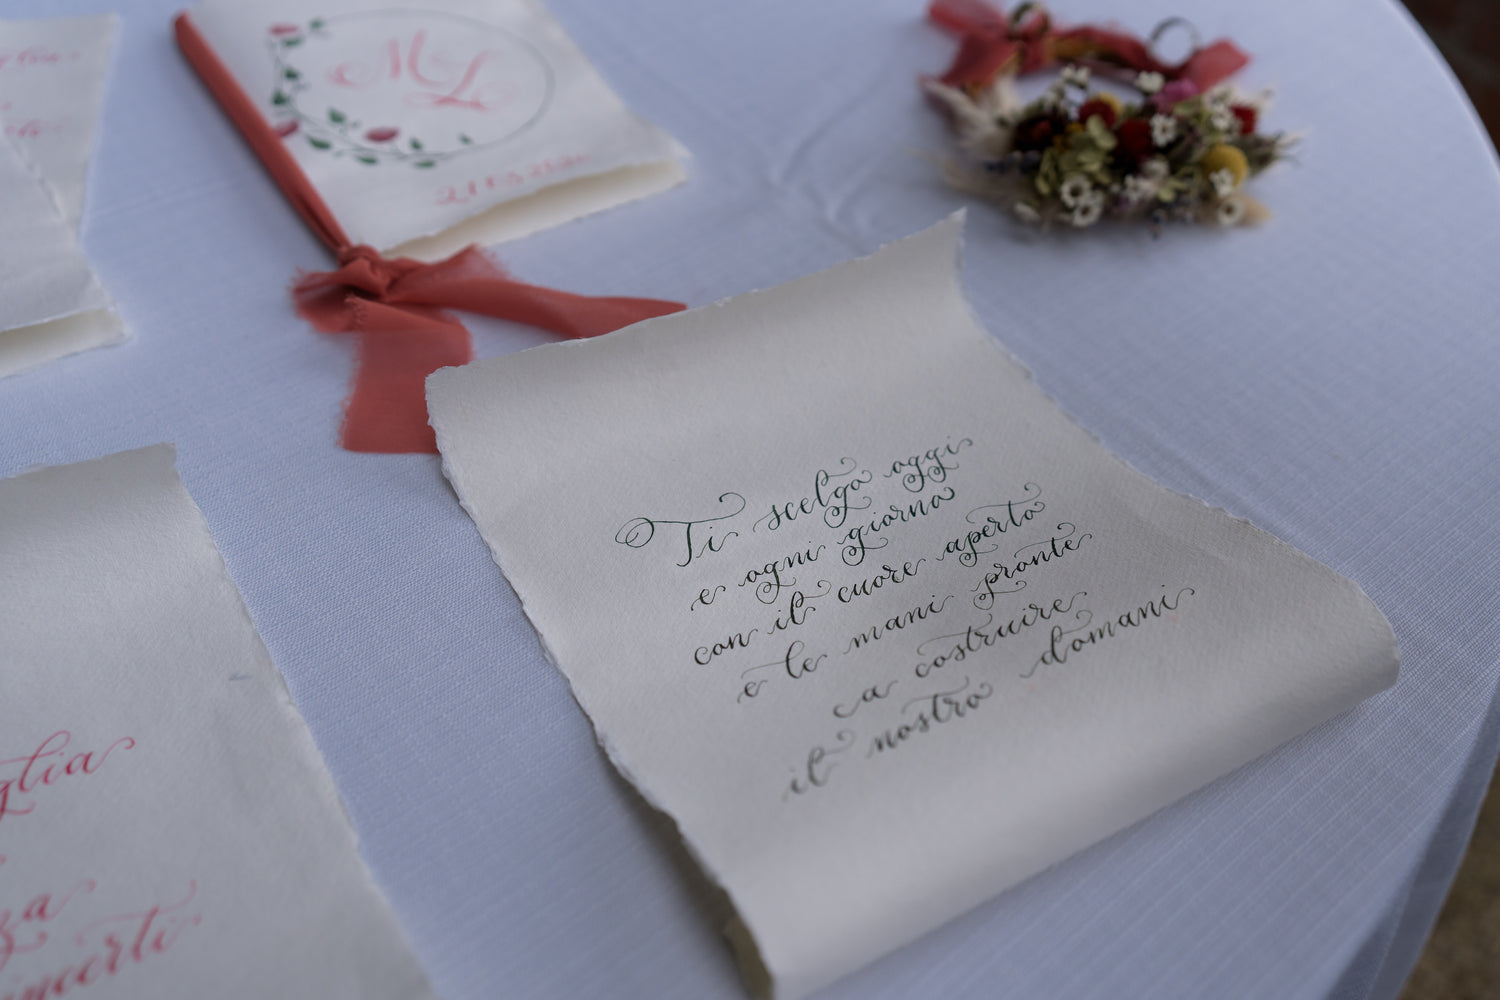 ML
Ti scelgo oggi
e ogni giorno
con il cuore aperto
e le mani pronte
a costruire
il nostro domani
glia
za
incerti